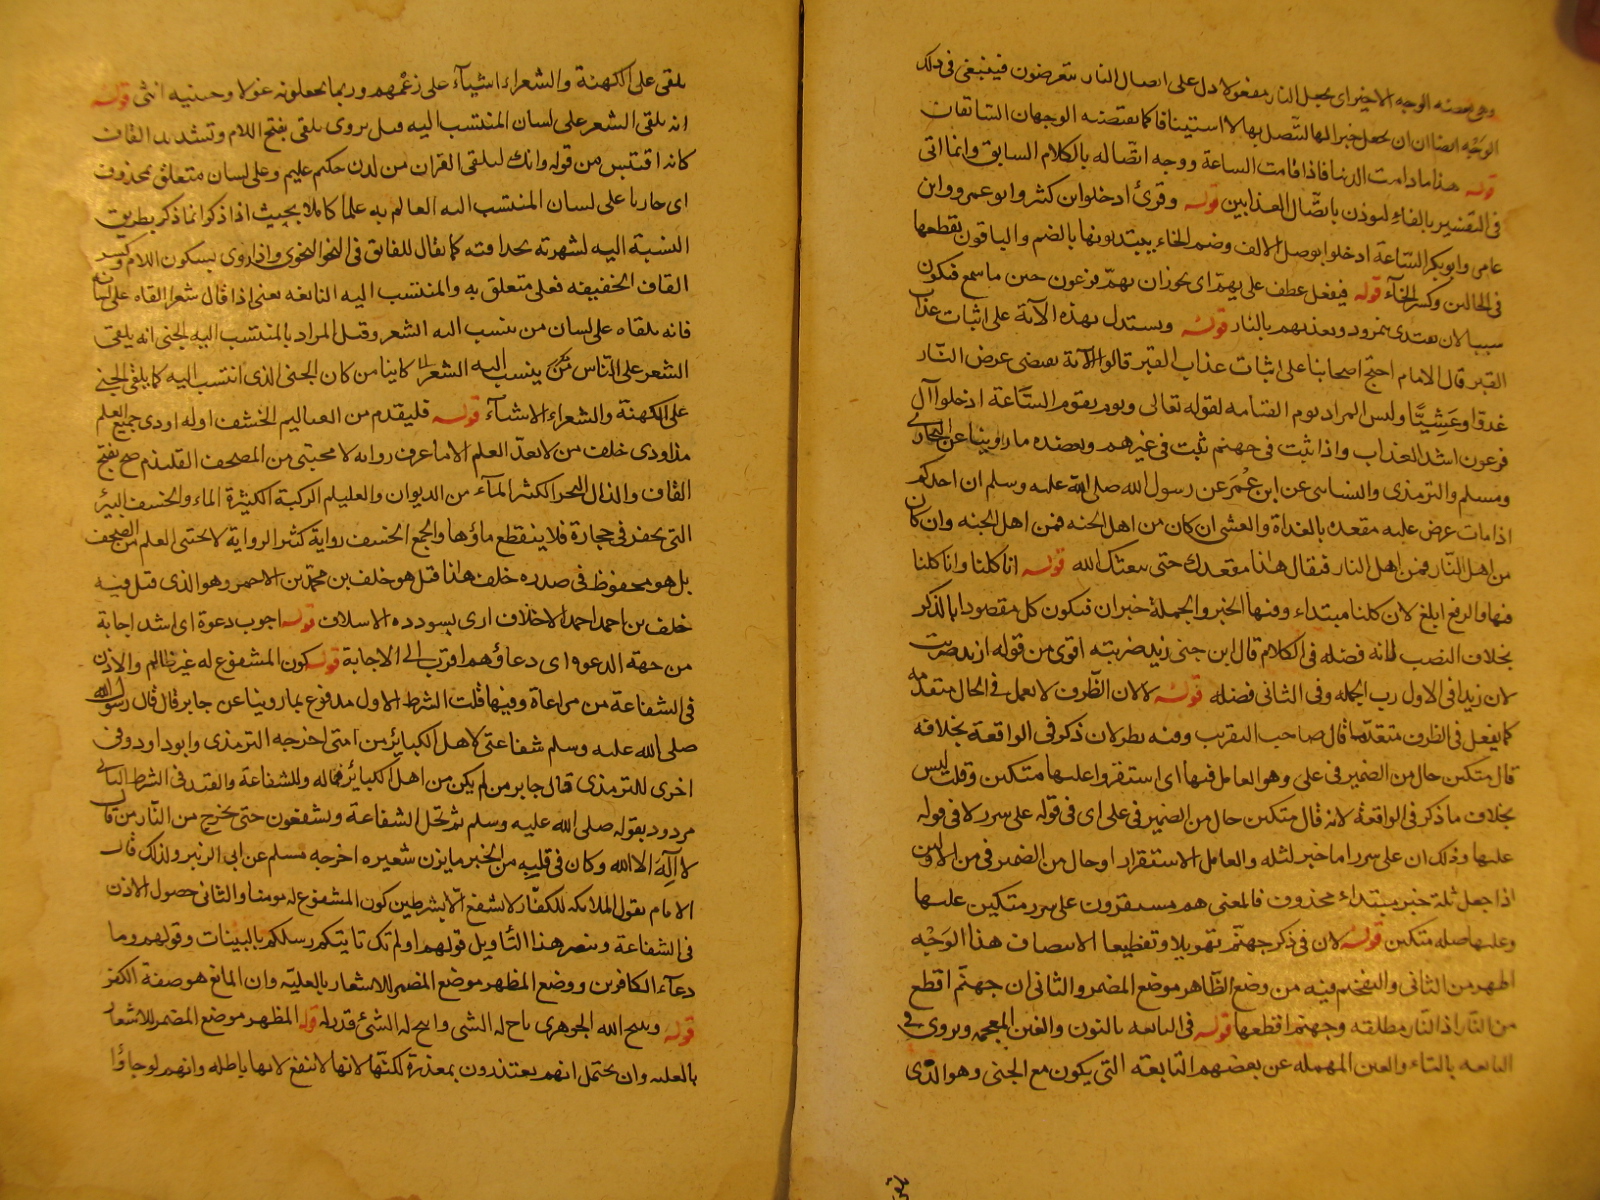 الوجه الاخير اى يجعل النار مفعولا دل على اتصال النار يتعرضون فينبغى فى ذلك
الوجه ايضا ان يجعل خبرا لها لتتصل بها لا استينافا كما يقتضيه الوجهان السابقان
قوله هذا ما دامت الدنيا فاذا قامت الساعة ووجه اتصاله بالكلام السابق وانما اتى
فى التفسير بالفاء ليوذن باتصال العذابين قوله وقرئ ادخلوا ابن كثير وابو عمرو وابن
عامر وابو بكر الساعة ادخلوا بوصل الالف وضم الخاء يبتدئونها بالضم والباقون بقطعها
فى الحالين وكسر الخاء قوله فيفعل عطف على يهم اى يجوز ان يهم فرعون حين ما سمع فيكون
سببا لان يقتدى بنمرود ويعذبهم بالنار قوله ويستدل بهذه الآية على اثبات عذاب
القبر قال الامام احتج اصحابنا على اثبات عذاب القبر قالوا الآية تقتضى عرض النار
غدوا وعشيا وليس المراد يوم القيامه لقوله تعالى ويوم يقوم الساعة ادخلوا آل
فرعون اشد العذاب واذا ثبت فى جهنم ثبت فى غيرهم ويعضده ما روينا عن البخارى
ومسلم والترمذى والنسائى عن ابن عمر عن رسول الله صلى الله عليه وسلم ان احدكم
اذا مات عرض عليه مقعده بالغداة والعشى ان كان من اهل الجنه فمن اهل الجنه وان كان
من اهل النار فمن اهل النار فيقال هذا مقعدك حتى يبعثك الله قوله انا كلنا وانا كلنا
فيها والرفع ابلغ لان كلنا مبتداء وفيها الخبر والجملة خبر ان فيكون كل مقصودا بالذكر
بخلاف النصب فانه فضله فى الكلام قال ابن جنى زيد ضربته اقوى من قوله ازيد ضربت
لان زيدا فى الاول رب الجمله وفى الثانى فضله قوله لا لان الظرف لا يعمل فى الحال متقدمه
كما يعمل فى الظرف متقدما قال صاحب التقريب وفيه نظر لان ذكر فى الواقعة بخلافه
قال متكئين حال من الضمير فى على وهو العامل فيها اى استقروا عليها متكئين وقلت ليس
بخلاف ما ذكر فى الواقعة لانه قال متكئين حال من الضمير فى على اى فى قوله على سرر لا فى قوله
عليها وذلك ان على سرر اما خبر لثله والعامل الاستقرار او حال من الضمير فى من الاولين
اذا جعل ثلة خبر مبتداء محذوف فالمعنى هم مستقرون على سرر متكئين عليها
وعليها صله متكئين قوله لان فى ذكر جهنم تهويلا وتفظيعا الانتصاف هذا الوجه
اظهر من الثانى والتفخيم فيه من وضع الظاهر موضع المضمر والثانى ان جهنم اقطع
من النار اذ النار مطلقه وجهنم اقطعها قوله فى النابغه بالنون والغين المعجمه ويروى فى
التابعه بالتاء والعين المهمله عن بعضهم التابعة التى يكون مع الجنى وهو الذى
يلقى على الكهنة والشعراء اشياء على زعمهم وربما يجعلونه غولا وجنيه انثى قوله
انه يلقى الشعر على لسان المنتسب اليه قيل يروى يلقى بفتح اللام وتشديد القاف
كانه اقتبس من قوله وانك لتلقى القران من لدن حكيم عليم وعلى لسان متعلق بمحذوف
اى جاريا على لسان المنتسب اليه العالم به علما كاملا بحيث اذا ذكر انما ذكر بطريق
النسبة اليه لشهرته بحذاقته كما يقال للفائق فى النحو النحوى واذا روى بسكون اللام وكسر
القاف الخفيفه فعلى متعلق به والمنتسب اليه النابغه يعنى اذا قال شعرا القاه على لسان
فانه يلقاه على لسان من ينسب اليه الشعر وقيل المراد بالمنتسب اليه الجنى انه يلقى
الشعر على الناس ممن ينسب اليه الشعر كاينا من كان الجنى الذى انتسب اليه كما يلقى الجنى
على الكهنة والشعراء الاشياء قوله قليذم من العياليم الخسف اوله اودى جميع العلم
مذ اودى خلف من لا يعد العلم الا ما عرف روايه لا يجتنى من الصحف القليذم صح بفتح
القاف والذال البحر الكثر الماء من الديوان والعليلم الركية الكثيرة الماء والخسف البئر
التى يحفر فى حجارة فلا ينقطع ماؤها والجمع الخسف رواية كثير الرواية لا يجتنى العلم من الصحف
بل هو محفوظ فى صدره خلف هذا قيل هو خلف بن محمد بن الاحمر وهو الذى قيل فيه
خلف بن احمد احمد الاخلاف اربى بسودده الاسلاف قوله اجوب دعوة اى اشد اجابة
من جهة الدعوه اى دعاؤهم اقرب الى الاجابة قوله كون المشفوع له غير ظالم والاذن
فى الشفاعة من مراعاة وفيها قلت الشرط الاول مدفوع بما روينا عن جابر قال قال رسول الله
صلى الله عليه وسلم شفاعتى لاهل الكبائر من امتى اخرجه الترمذى وابو داود وفى
اخرى للترمذى قال جابر من لم يكن من اهل الكبائر فماله وللشفاعة والقيد فى الشرط الثانى
مردود بقوله صلى الله عليه وسلم ثم تحل الشفاعة ويشفعون حتى يخرج من النار من قال
لا اله الا الله وكان فى قلبه من الخير ما يزن شعيره اخرجه مسلم عن ابى الزبير ولذلك قال
الامام يقول الملائكه للكفار لا نشفع الا بشرطين كون المشفوع له مومنا والثانى حصول الاذن
فى الشفاعة وينصر هذا التاويل قولهم او لم تك تاتيكم رسلكم بالبينات وقولهم وما
دعاء الكافرين ووضع المظهر موضع المضمر للاشعار بالعلية وان المانع هو صفة الكفر
قوله ويتيح الله الجوهرى تاح له الشى واتيح له الشئ قدر له قوله المظهر موضع المضمر للاشعار
بالعليه وان يحتمل انهم يعتذرون بمعذرة لكنها لانها لا تنفع لانها باطله وانهم لو جاؤا